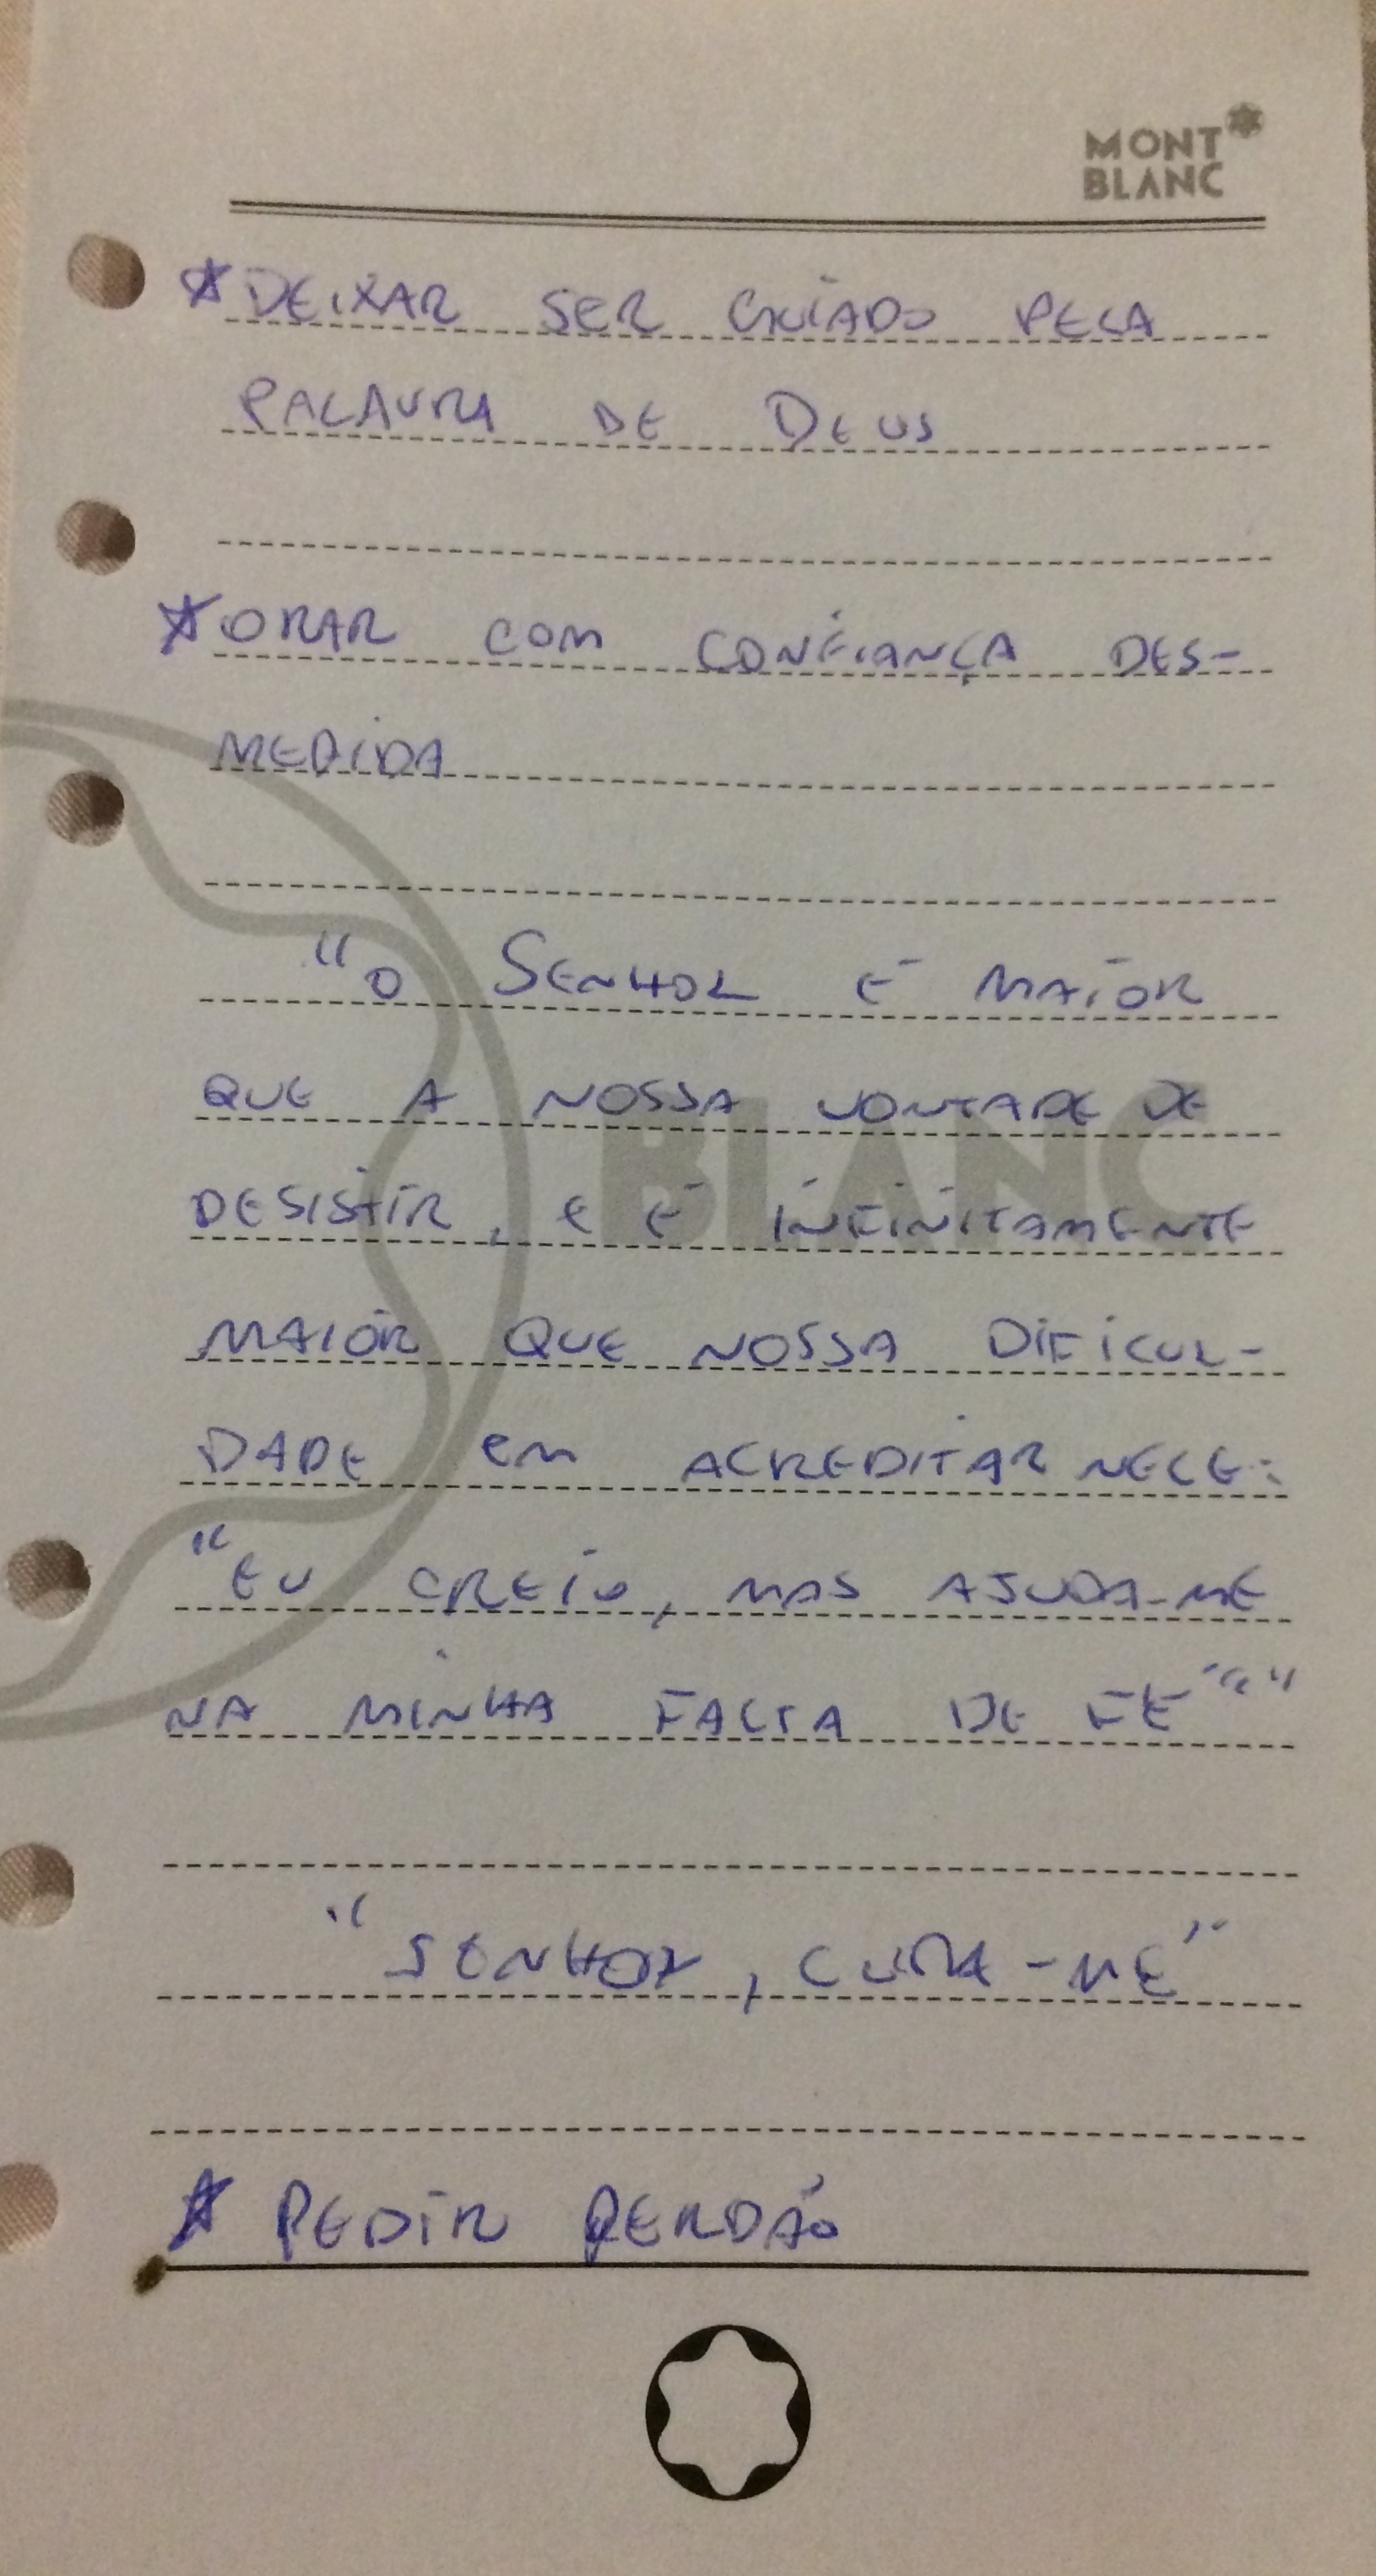 MONT
BLANC
* DEIXAR SER GUIADO PELA
PALAVRA DE DEUS
* ORAR COM CONFIANÇA DES-
MEDIDA
"O SENHOR É MAIOR
QUE A NOSSA VONTADE DE
DESISTIR, E É INFINITAMENTE
MAIOR QUE NOSSA DIFICUL-
DADE EM ACREDITAR NELE:
"EU CREIO, MAS AJUDA-ME
NA MINHA FALTA DE FÉ""
"SENHOR, CURA-ME"
* PEDIR PERDÃO
BLANC